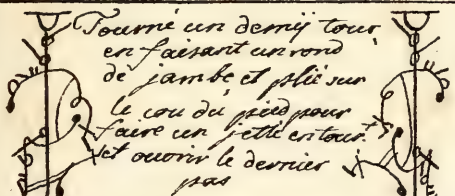 Tourné un demij tour
en faisant un rond
de jambe et plié sur
le cou du pied pour
faire un jetté en tour.
et ouvrir le dernier
pas